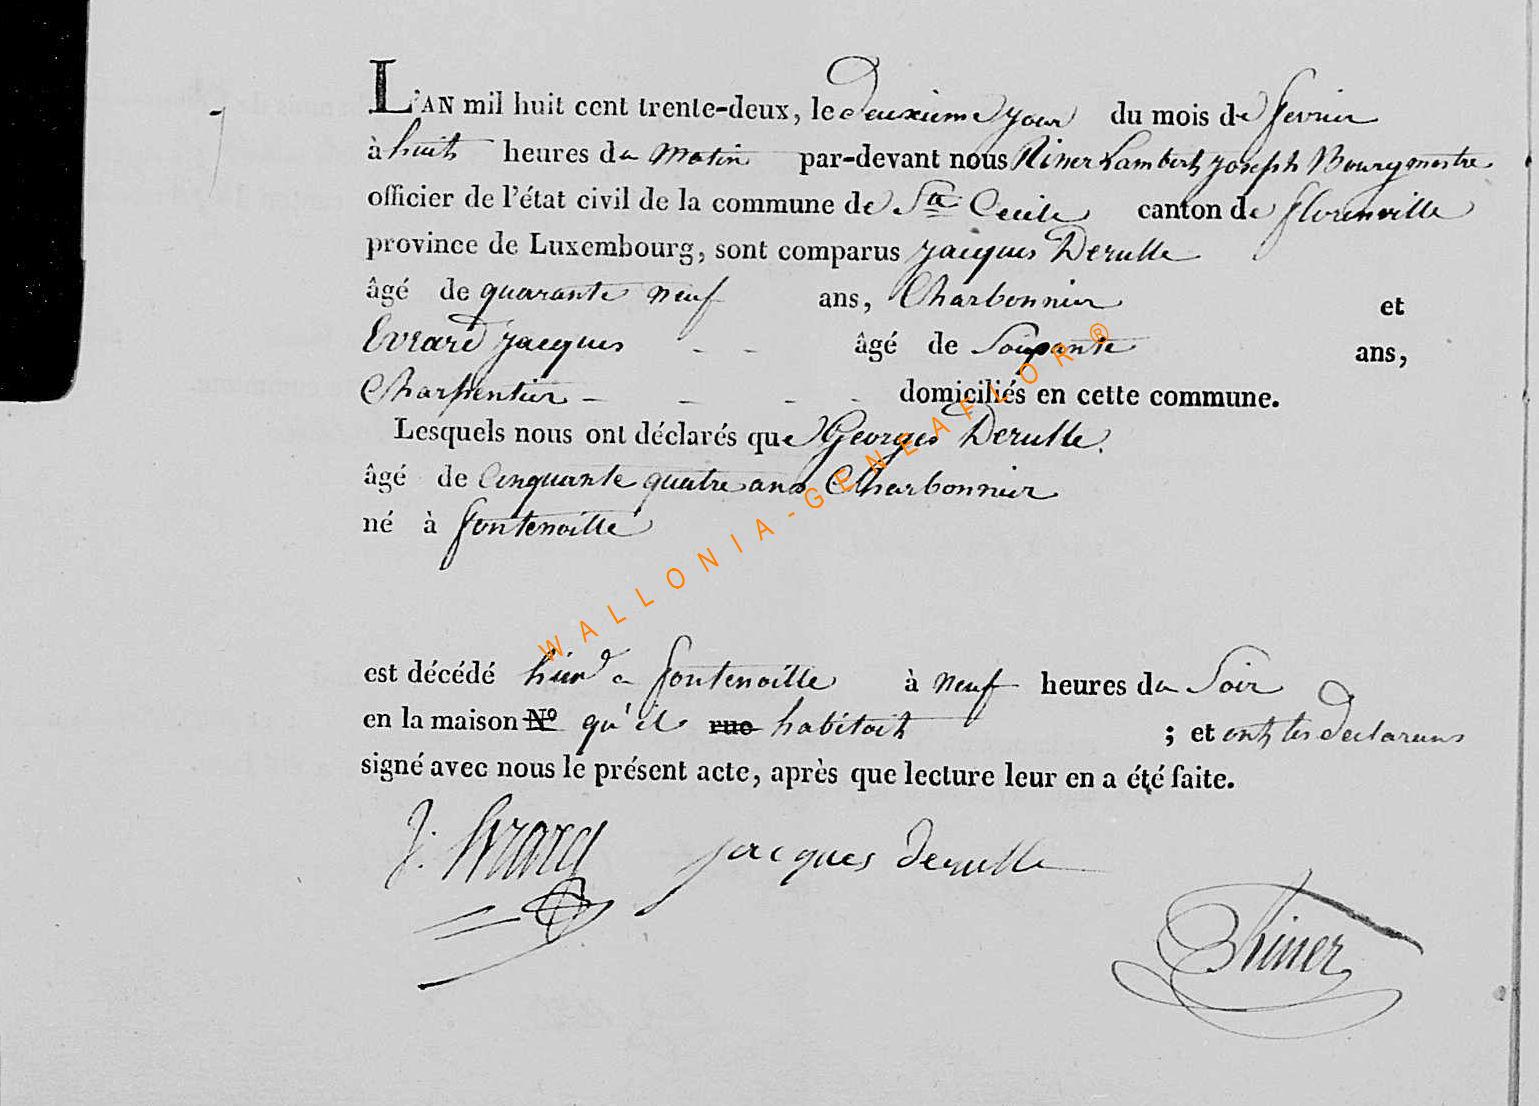 L'AN mil huit cent trente-deux, le deuxieme jour du mois de fevrier
à huit heures du matin par-devant nous Riner Lambert joseph Bourgmestre
officier de l'état civil de la commune de Ste Cecile canton de florenville
province de Luxembourg, sont comparus jacques Derulle
âgé de quarante neuf ans, Charbonnier et
Evrard jacques - - âgé de Soixante ans,
Charpentier - - - - domiciliés en cette commune.
Lesquels nous ont déclarés que Georges Derulle.
âgé de Cinquante quatre ans Charbonnier
né à fontenoille
est décédé hier a fontenoille à neuf heures du Soir
en la maison No qu'il rue habitoit ; et ont les declarans
signé avec nous le présent acte, après que lecture leur en a été faite.
J. Evrard jacques derulle
Riner
WALLONIA-GENEAFLOR®